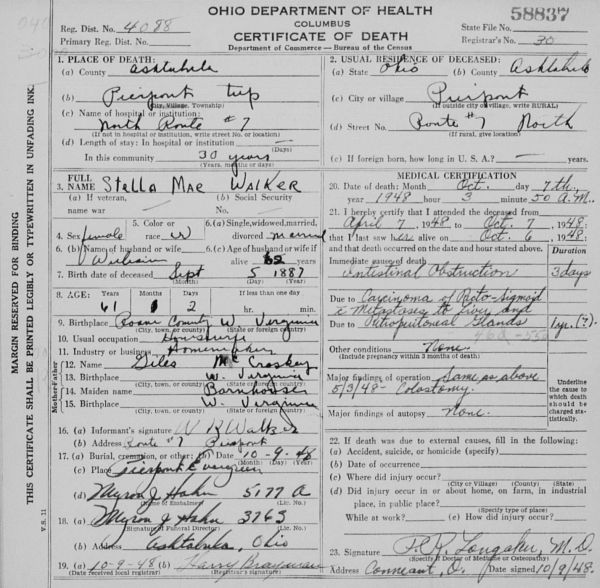 OHIO DEPARTMENT OF HEALTH
COLUMBUS
CERTIFICATE OF DEATH
Department of Commerce — Bureau of the Census
Reg. Dist. No. 4088
Primary Reg. Dist. No.
58837
State File No.
Registrar's No. 30
MARGIN RESERVED FOR BINDING
THIS CERTIFICATE SHALL BE PRINTED LEGIBLY OR TYPEWRITTEN IN UNFADING INK.
V.S. 11
1. PLACE OF DEATH:
(a) County Ashtabula
(b) Pierpont twp
(City, Village, Township)
(c) Name of hospital or institution:
North Route #7
(If not in hospital or institution, write street No. or location)
(d) Length of stay: In hospital or institution —
(Days)
In this community 30 years
(Years, months or days)
2. USUAL RESIDENCE OF DECEASED:
(a) State Ohio (b) County Ashtabula
(c) City or village Pierpont
(If outside city or village, write RURAL)
(d) Street No. Route #7 North
(If rural, give location)
(e) If foreign born, how long in U. S. A.? — years.
3. FULL NAME Stella Mae Walker
(a) If veteran, name war —
(b) Social Security No. —
4. Sex female
5. Color or race W
6. (a) Single, widowed, married, divorced married
6. (b) Name of husband or wife William
6. (c) Age of husband or wife if alive 62 years
7. Birth date of deceased Sept 5 1887
(Month) (Day) (Year)
8. AGE: 61 1 2
If less than one day
hr. min.
9. Birthplace Roane County W. Virginia
(City, town, or county) (State or foreign country)
10. Usual occupation Housewife
11. Industry or business Homemaker
Father
12. Name Giles McCroskey
13. Birthplace W. Virginia
(City, town, or county) (State or foreign country)
Mother
14. Maiden name Barnhouser
15. Birthplace W. Virginia
(City, town, or county) (State or foreign country)
16. (a) Informant's signature W R Walker
(b) Address Route #7 Pierpont
17. (a) Burial, cremation, or other: (b) Date 10-9-48
(Month) (Day) (Year)
(c) Place Pierpont Evergreen
(d) Myron J Hahn 5177 A
(Name of Embalmer) (Lic. No.)
18. (a) Myron J Hahn 3763
(Signature of Funeral Director) (Lic. No.)
(b) Address Ashtabula, Ohio
19. (a) 10-9-48 (b) Harry Brayman
(Date received local registrar) (Registrar's signature)
MEDICAL CERTIFICATION
20. Date of death: Month Oct. day 7th,
year 1948 hour 3 minute 50 A.M.
21. I hereby certify that I attended the deceased from
April 7, 1948 to Oct 7, 1948;
that I last saw her alive on Oct. 6, 1948;
and that death occurred on the date and hour stated above.
Duration
Immediate cause of death
Intestinal Obstruction 3 days
Due to Carcinoma of Recto-Sigmoid
c Metastasis to Liver and
Due to Retroperitoneal Glands 1 yr. (?)
Other conditions None
(Include pregnancy within 3 months of death)
Major findings of operation Same as above
5/3/48 - Colostomy.
Major findings of autopsy None.
Underline the cause to which death should be charged statistically.
22. If death was due to external causes, fill in the following:
(a) Accident, suicide, or homicide (specify)
(b) Date of occurrence
(c) Where did injury occur?
(City or Village) (County) (State)
(d) Did injury occur in or about home, on farm, in industrial
place, in public place?
While at work? (e) How did injury occur?
23. Signature M.D.
(Specify if Doctor of Medicine or Osteopathy)
Address Conneaut, O. Date signed 10/9/48